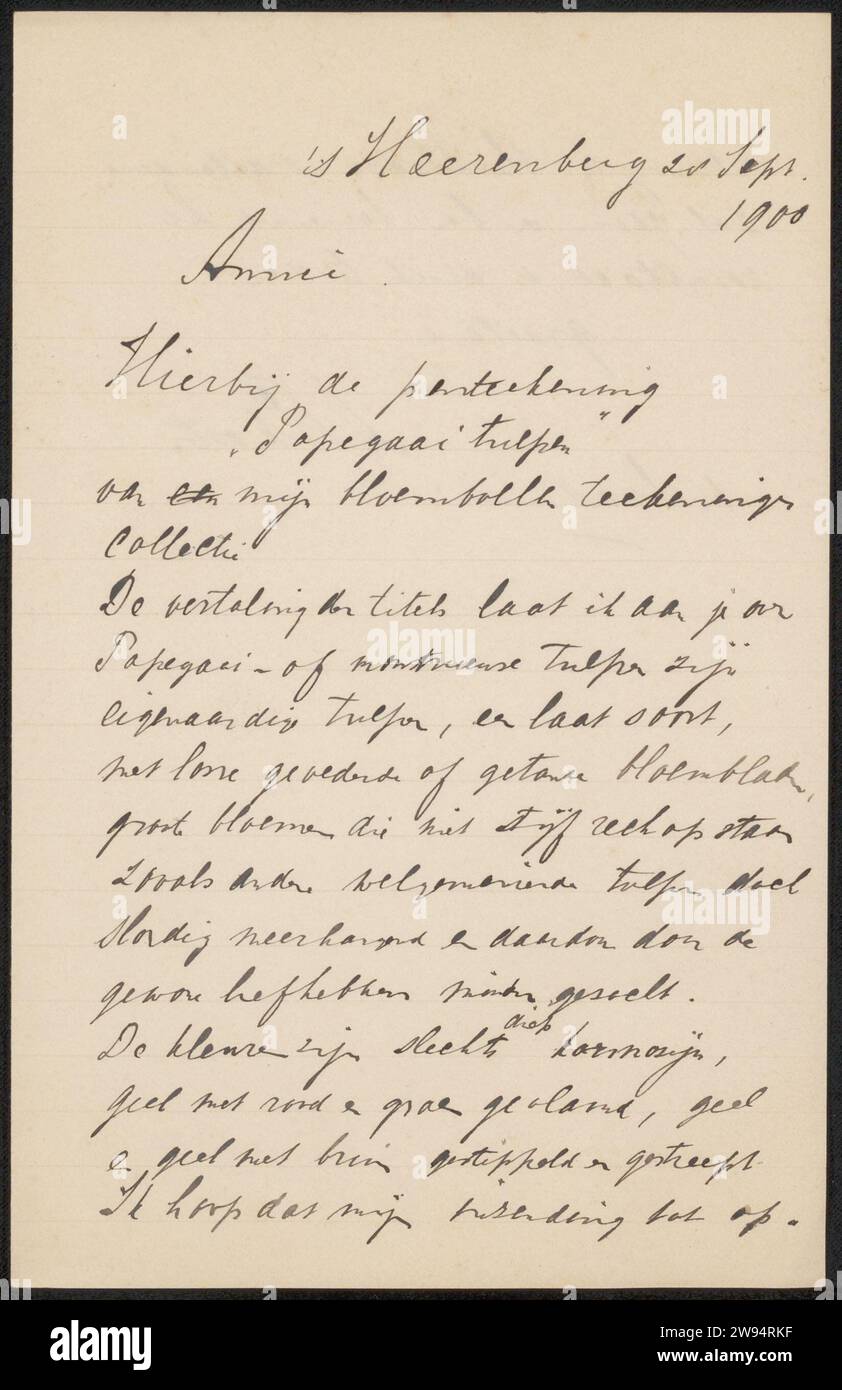 's Heerenberg 28 Sept.
1900
Annie.
Hierbij de penteekening
"Papegaai tulpen"
van een mijn bloembollen teekeningen
Collectie
De vertaling der titels laat ik aan je over
Papegaai - of monstrueuse tulpen zijn
eigenaardige tulpen, een laat soort,
met losse gevederde of getande bloembladen,
groote bloemen die niet stijf rechop staan
zooals andere welgemanierde tulpen doch
slordig neerhangend en daardoor door de
gewone liefhebbers minder gezocht.
De kleuren zijn slechts diep karmozijn,
geel met rood en groen gevlamd, geel
en geel met bruin gestippeld en gestreept.
Ik hoop dat mijn inzending tot op-
alamy
www.alamy.com
Image ID: 2W94RKF